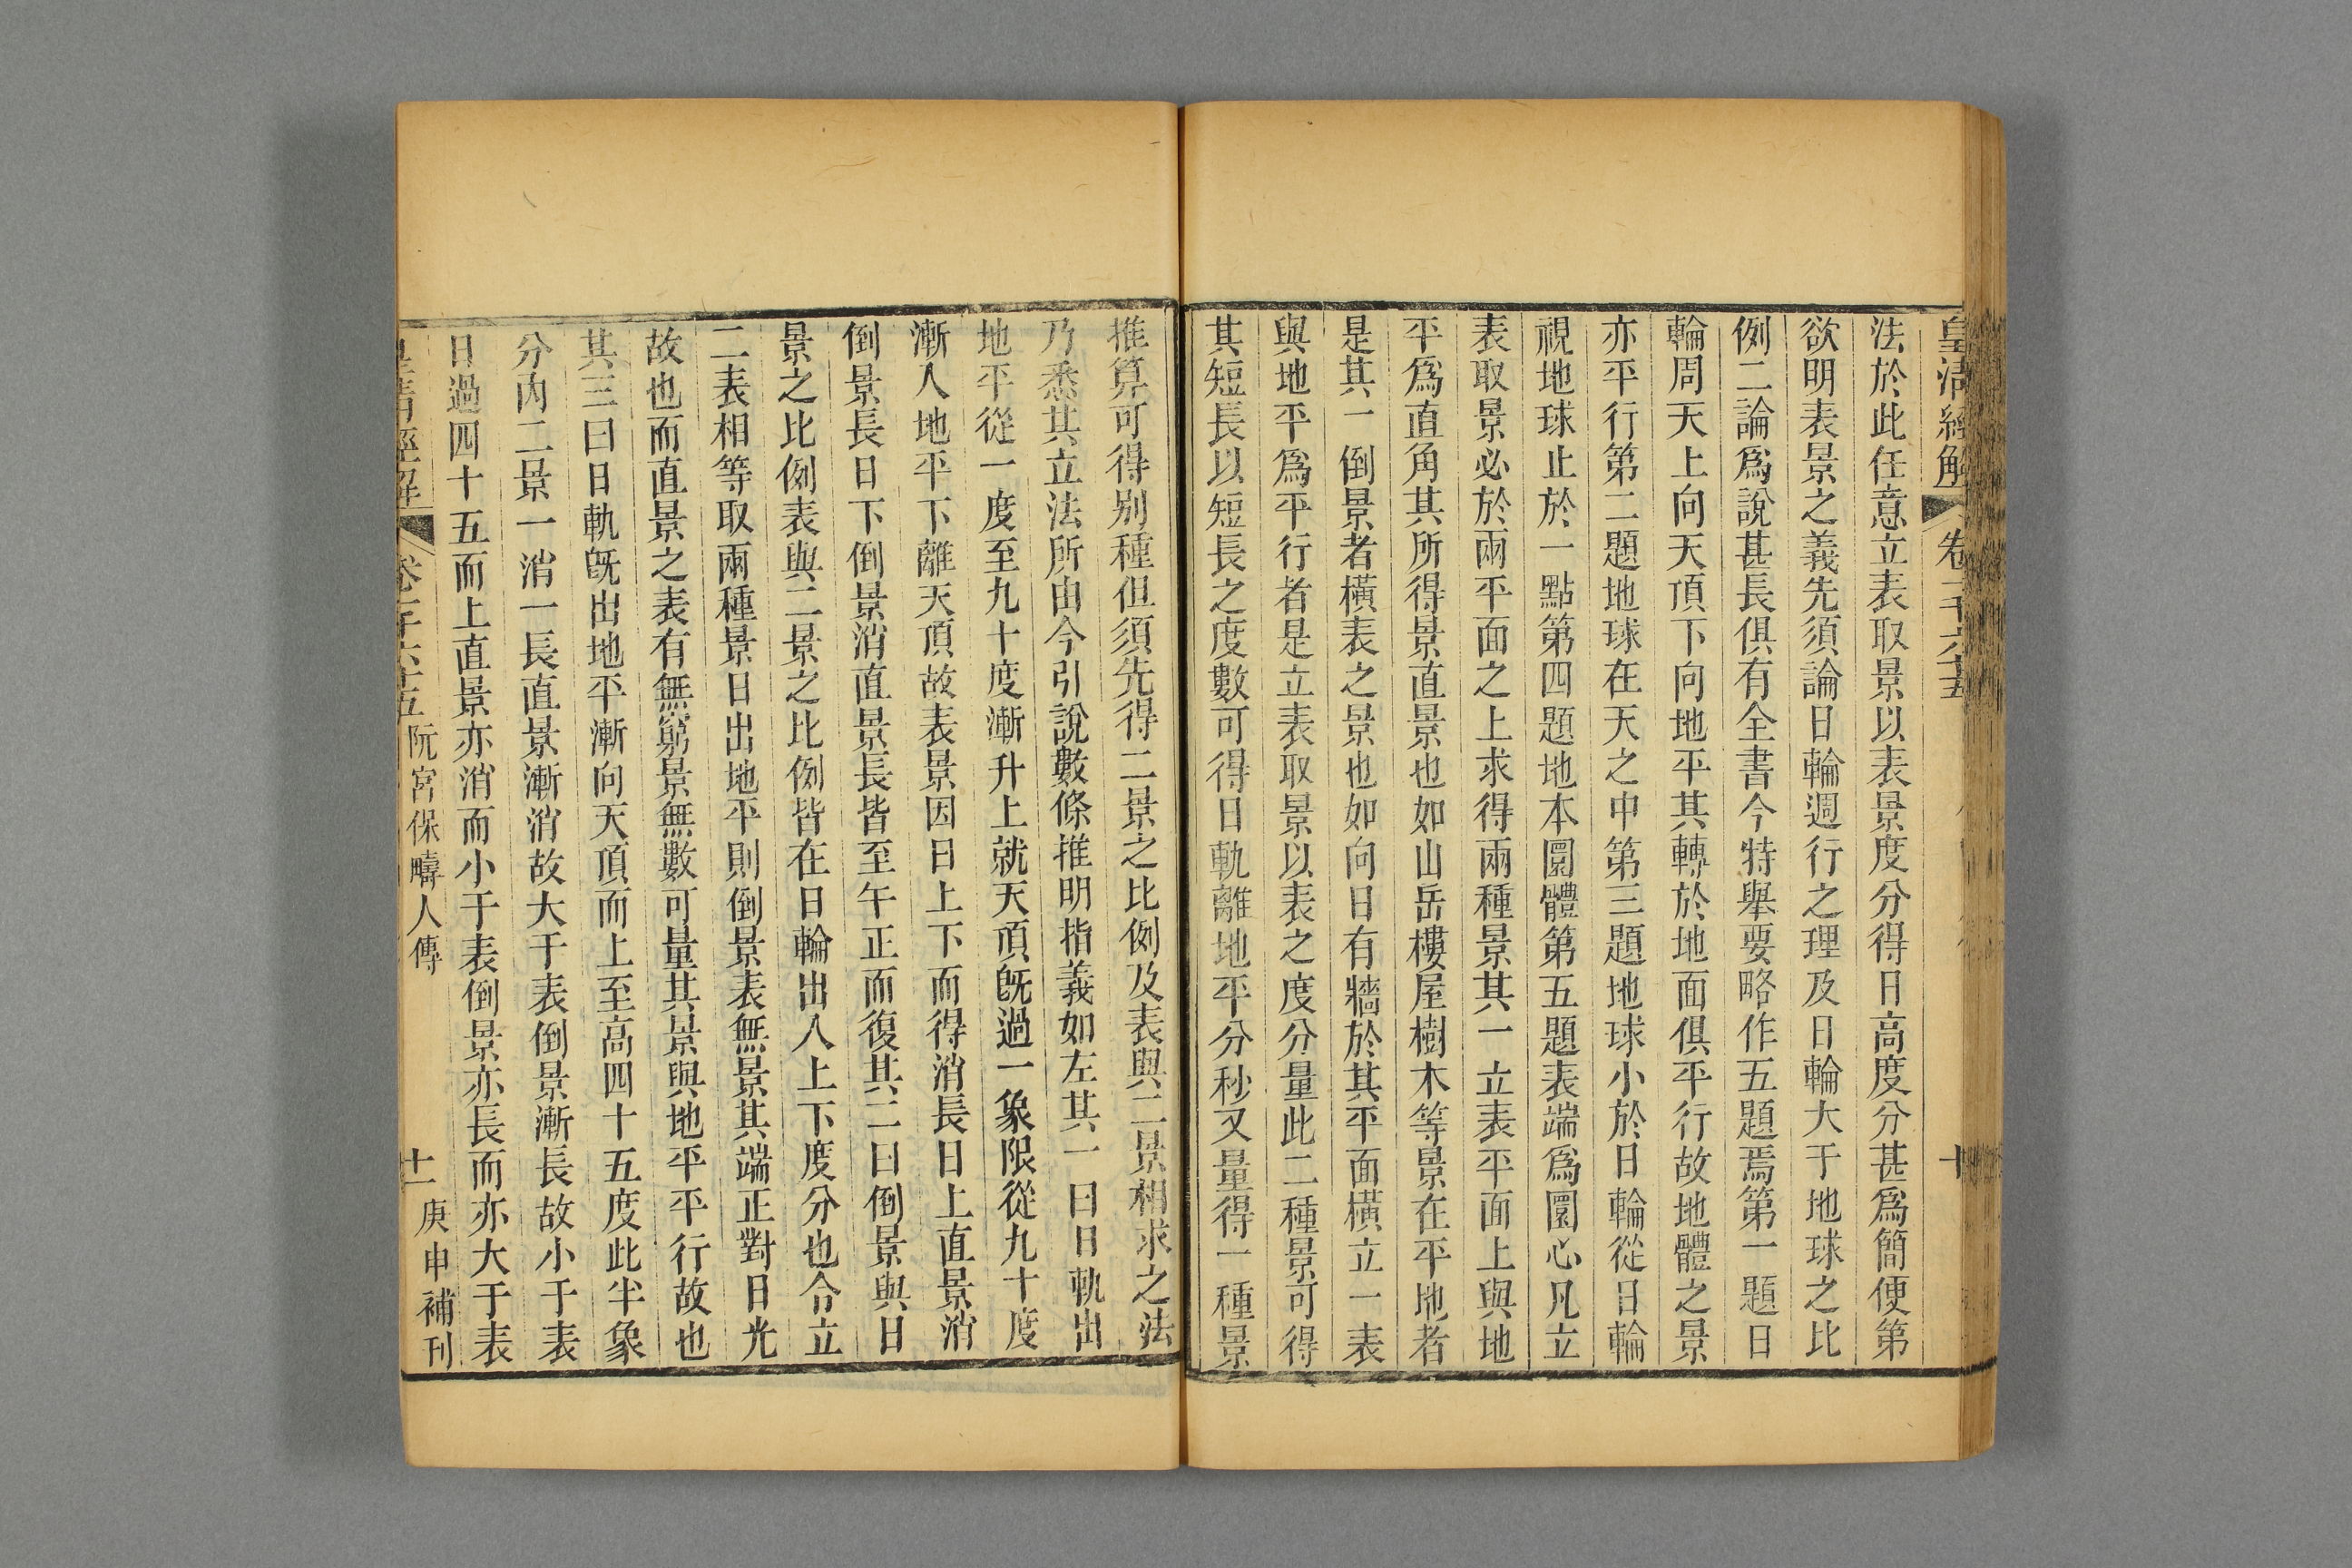 皇清經解 卷一千六十五 十
法於此任意立表取景以表景度分得日高度分甚爲簡便第
欲明表景之義先須論日輪週行之理及日輪大于地球之比
例二論爲說甚長俱有全書今特舉要略作五題焉第一題日
輪周天上向天頂下向地平其轉於地面俱平行故地體之景
亦平行第二題地球在天之中第三題地球小於日輪從日輪
視地球止於一點第四題地本圜體第五題表端爲圜心凡立
表取景必於兩平面之上求得兩種景其一立表平面上與地
平爲直角其所得景直景也如山岳樓屋樹木等景在平地者
是其一倒景者橫表之景也如向日有牆於其平面橫立一表
與地平爲平行者是立表取景以表之度分量此二種景可得
其短長以短長之度數可得日軌離地平分秒又量得一種景
推算可得别種但須先得二景之比例及表與二景相求之法
乃悉其立法所由今引說數條推明指義如左其一曰日軌出
地平從一度至九十度漸升上就天頂旣過一象限從九十度
漸入地平下離天頂故表景因日上下而得消長日上直景消
倒景長日下倒景消直景長皆至午正而復其二曰倒景與日
景之比例表與二景之比例皆在日輪出入上下度分也令立
二表相等取兩種景日出地平則倒景表無景其端正對日光
故也而直景之表有無窮景無數可量其景與地平平行故也
其三曰日軌旣出地平漸向天頂而上至高四十五度此半象
分内二景一消一長直景漸消故大于表倒景漸長故小于表
日過四十五而上直景亦消而小于表倒景亦長而亦大于表
皇清經解 卷一千六十五 阮宮保疇人傳 十一 庚申補刊